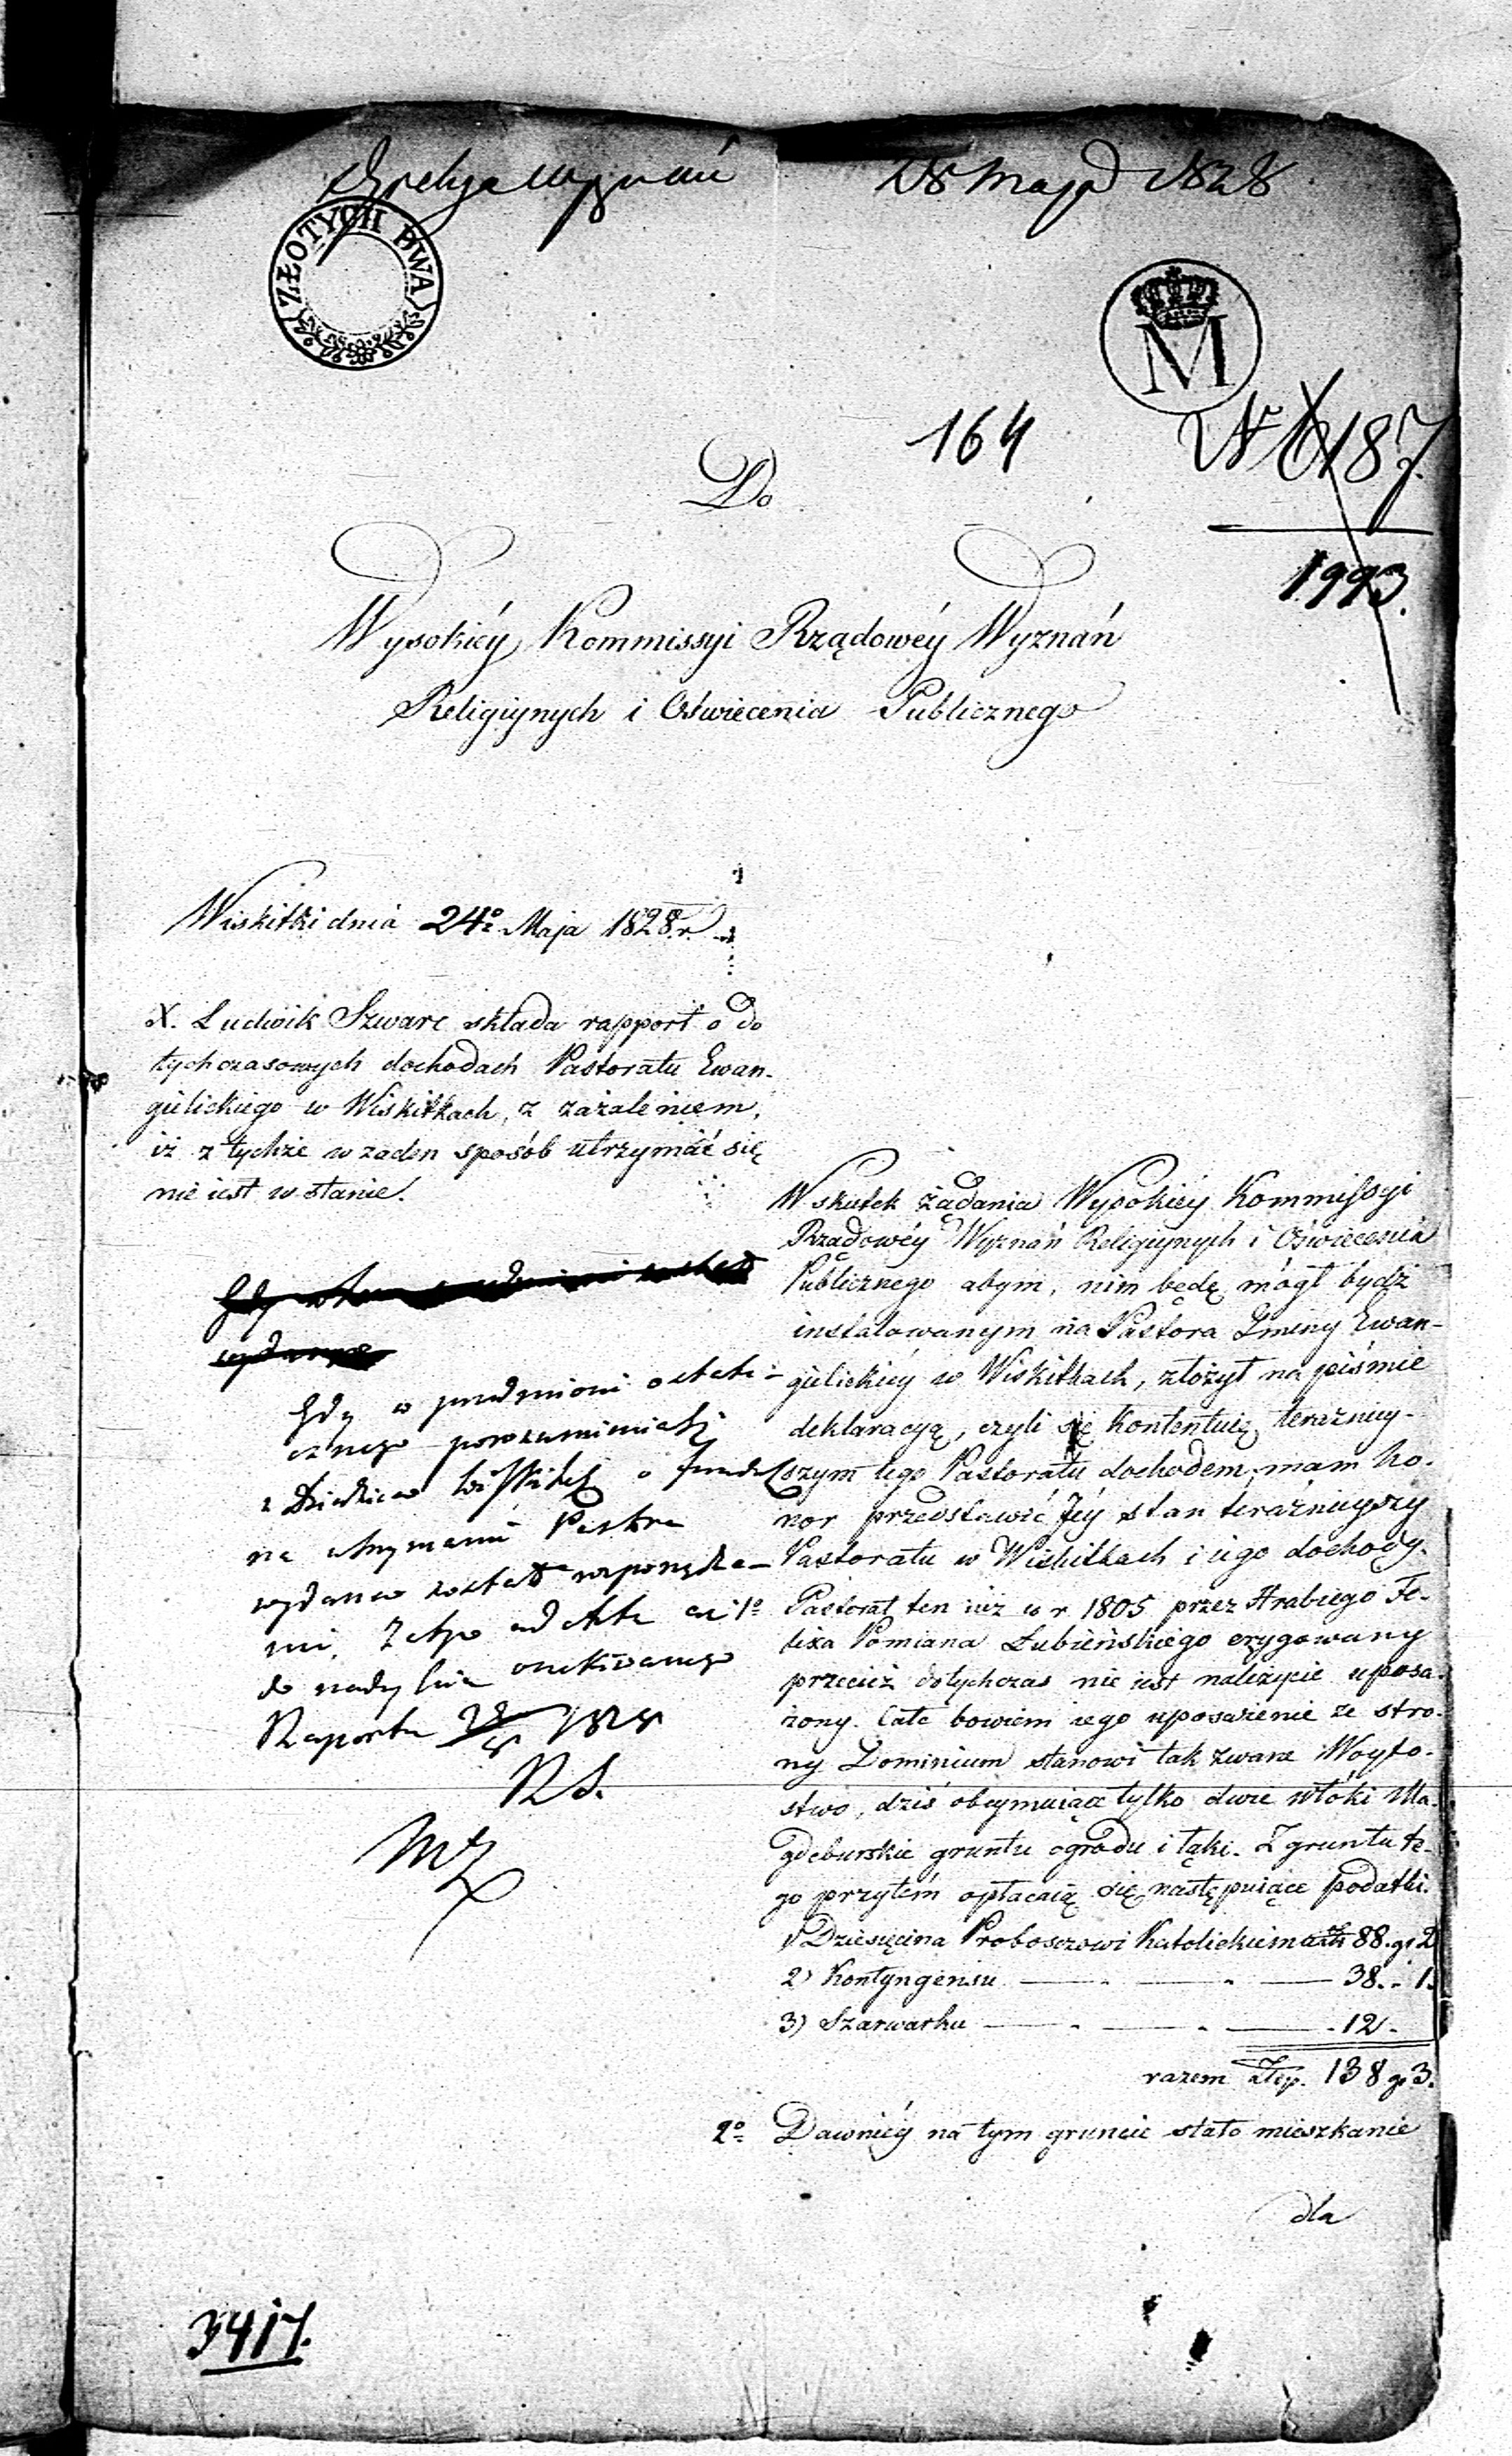 28 Maja 1828
ZŁOTYCH DWA
M
164
N 6187.
1993.
Do
Wysokiéy Kommissyi Rządowéy Wyznań
Religiynych i Oświecenia Publicznego
Wiskitki dnia 24º Maja 1828 r.
X. Ludwik Szwarc składa rapport o do
tychczasowych dochodach Pastoratu Ewan-
gielickiego w Wiskitkach, z zażaleniem,
iż z tychże w żaden sposób utrzymać się
nie iest w stanie.
Gdy w przedmiocie ostate-
cznego porozumienia się
z Dziedzicem Wiskitek o fundusz
na utrzymanie Pastora
wydane zostało rozporządze-
nie, Zatym ad acta aż
do nadeyścia oczekiwanego
Raportu 28/5 1828
RS.
W skutek żądania Wysokiéy Kommissyi
Rządowéy Wyznań Religiynych i Oświecenia
Publicznego abym, nim będę mógł bydź
instalowanym na Pastora Gminy Ewan-
gielickiéy w Wiskitkach, złożył na piśmie
deklaracyą, czyli się kontentuię teraźniey-
szym tego Pastoratu dochodem; mam ho-
nor przedstawić Jéy stan teraźnieyszy
Pastoratu w Wiskitkach i iego dochody.
Pastorat ten iuż w r 1805 przez Hrabiego Fe-
lixa Pomiana Łubieńskiego erygowany
przecież dotychczas nie iest należycie uposa-
żony. Całe bowiem iego uposażenie ze stro-
ny Dominium stanowi tak zwane Woyto-
stwo, dziś obeymuiące tylko dwie włóki Ma-
gdeburskie gruntu ogrodu i łąki. Z gruntu te-
go przytém opłacaią się następuiące podatki.
1) Dziesięcina Proboszczowi Katolickiemu złt 88. gr 2
2) Kontyngensu 38. - 1.
3) Szarwarku 12.
razem Złtp. 138 gr 3.
2º Dawniéy na tym gruncie stało mieszkanie
dla
3417.